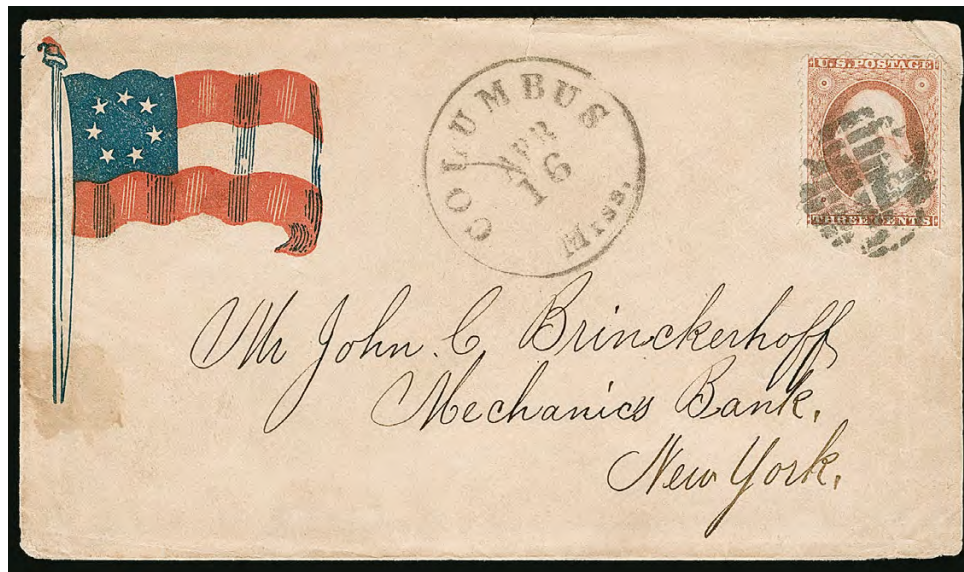 COLUMBUS
APR
16
Miss.
U.S. POSTAGE
THREE CENTS
Mr John. C Brinckerhoff
Mechanics Bank.
New York.